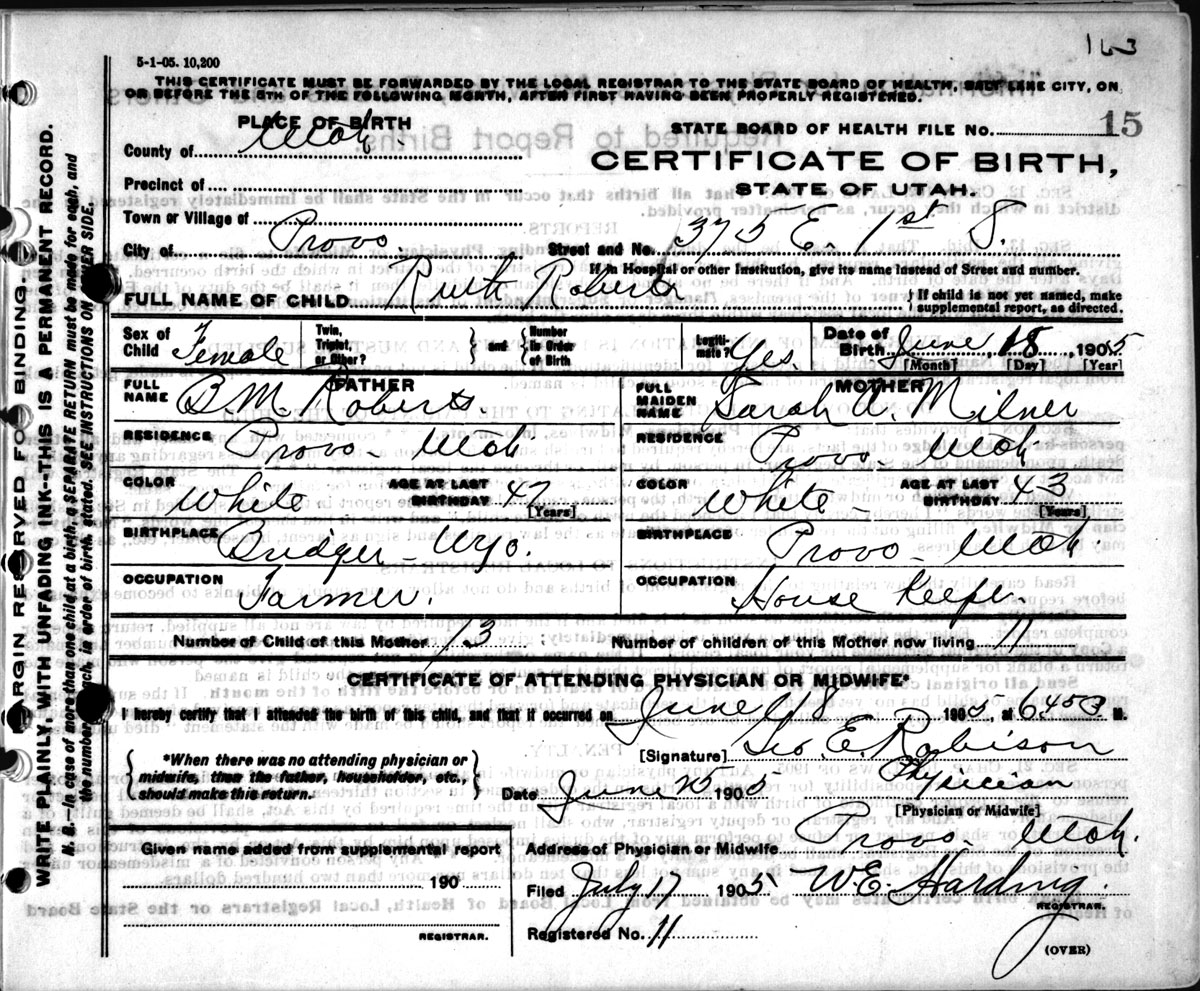 163
5-1-05. 10,200
THIS CERTIFICATE MUST BE FORWARDED BY THE LOCAL REGISTRAR TO THE STATE BOARD OF HEALTH, SALT LAKE CITY, ON
OR BEFORE THE 5TH OF THE FOLLOWING MONTH, AFTER FIRST HAVING BEEN PROPERLY REGISTERED.
PLACE OF BIRTH
STATE BOARD OF HEALTH FILE No. 15
County of Utah.
CERTIFICATE OF BIRTH,
STATE OF UTAH.
Precinct of
Town or Village of
City of Provo. Street and No. 375 E. 1st S.
If in Hospital or other Institution, give its name instead of Street and number.
FULL NAME OF CHILD Ruth Roberts } If child is not yet named, make supplemental report, as directed.
Sex of Child Female Twin, Triplet, or Other? } and { Number in Order of Birth Legitimate? Yes. Date of Birth June 18, 1905
[Month] [Day] [Year]
FATHER MOTHER
FULL NAME B M Roberts. FULL MAIDEN NAME Sarah A. Milner
RESIDENCE Provo - Utah RESIDENCE Provo - Utah
COLOR White AGE AT LAST BIRTHDAY 47 [Years] COLOR White - AGE AT LAST BIRTHDAY 43 [Years]
BIRTHPLACE Bridger - Wyo. BIRTHPLACE Provo - Utah.
OCCUPATION Farmer. OCCUPATION House Keeper.
Number of Child of this Mother 13 Number of children of this Mother now living 11
CERTIFICATE OF ATTENDING PHYSICIAN OR MIDWIFE*
I hereby certify that I attended the birth of this child, and that it occurred on June 18 1905, at M.
[Signature] Geo. E. Robison
*When there was no attending physician or midwife, then the father, householder, etc., should make this return. }
Date June 25 1905 Physician
[Physician or Midwife]
Given name added from supplemental report
Address of Physician or Midwife Provo - Utah.
190
Filed July 17 1905 W E. Harding.
REGISTRAR.
REGISTRAR.
Registered No. 11
(OVER)
MARGIN RESERVED FOR BINDING.
WRITE PLAINLY, WITH UNFADING INK--THIS IS A PERMANENT RECORD.
N. B.--In case of more than one child at a birth, a SEPARATE RETURN must be made for each, and
the number of each, in order of birth, stated. SEE INSTRUCTIONS ON OTHER SIDE.